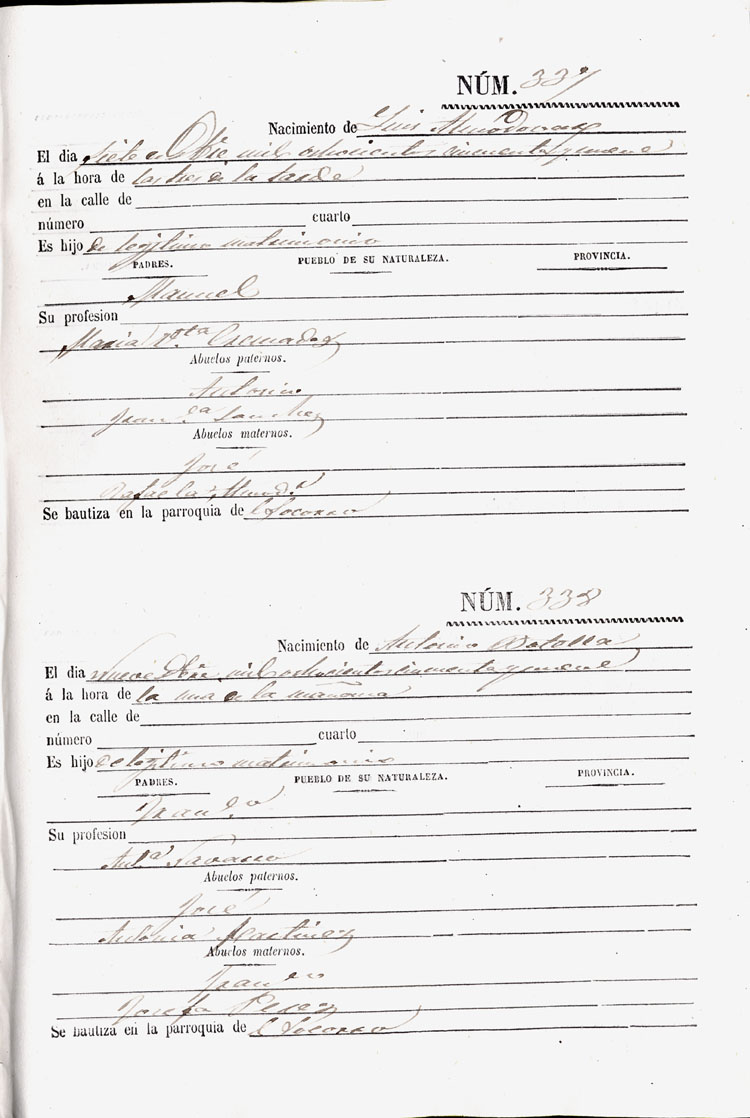 NÚM. 337
Nacimiento de Luis Almodovar
El dia siete de Dbre mil ochocientos cincuenta y nueve
á la hora de las tres de la tarde
en la calle de
número cuarto
Es hijo de legitimo matrimonio
PADRES. PUEBLO DE SU NATURALEZA. PROVINCIA.
Manuel
Su profesion
Maria
Abuelos paternos.
Antonio
Fran.ca Sanchez
Abuelos maternos.
José
Rafaela
Se bautiza en la parroquia de l Socorro
NÚM. 338
Nacimiento de Antonio Botella
El dia nueve Dbre mil ochocientos cincuenta y nueve
á la hora de la una de la mañana
en la calle de
número cuarto
Es hijo de legitimo matrimonio
PADRES. PUEBLO DE SU NATURALEZA. PROVINCIA.
Fran.co
Su profesion
Ant.a Navarro
Abuelos paternos.
José
Antonia Martinez
Abuelos maternos.
Fran.co
Josefa Perez
Se bautiza en la parroquia de l Socorro